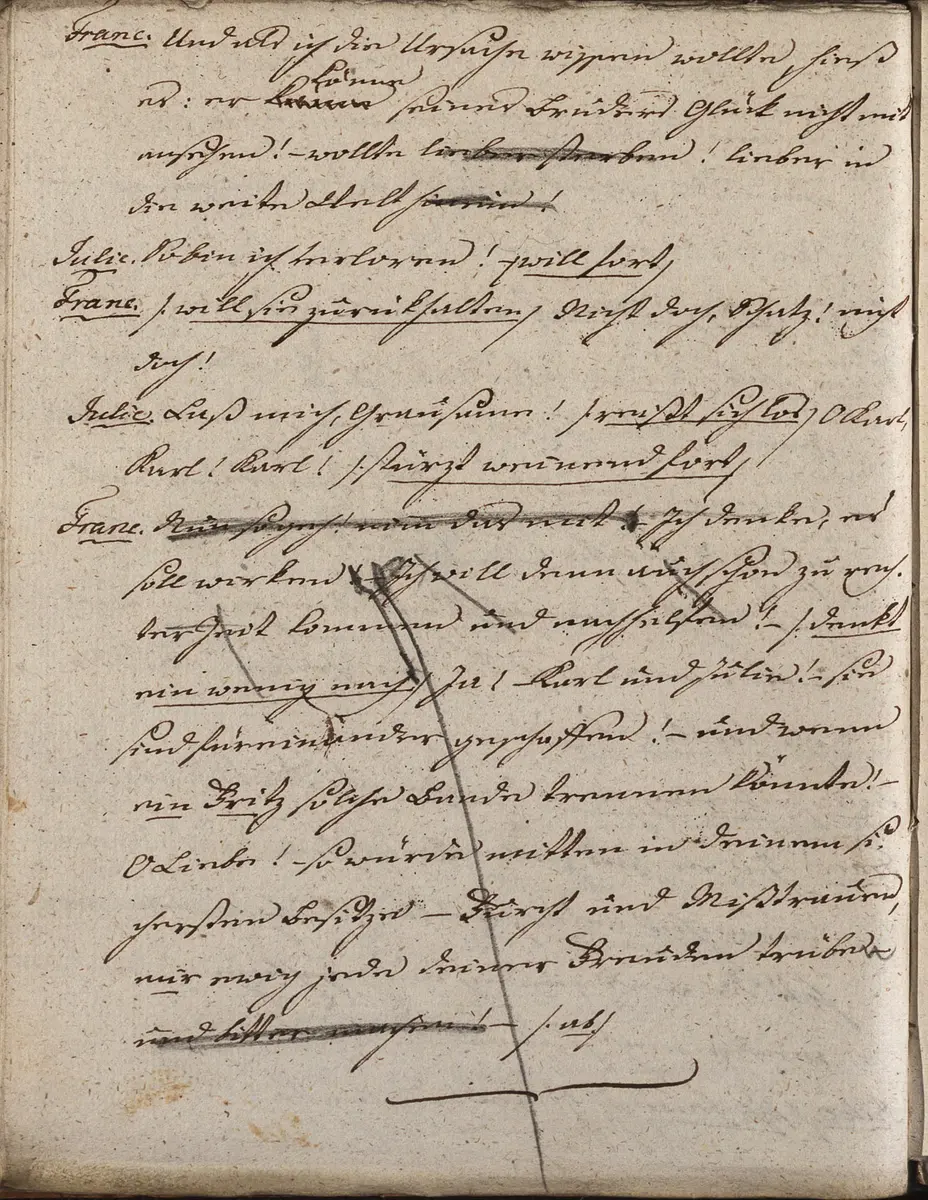 Franc. Und als ich die Ursache wissen wollte, hieß
es: er könne seines Bruders Glück nicht mit
ansehen! – wollte lieber sterben! lieber in
die weite Welt hinein!
Julie. So bin ich verloren! – /: will fort /
Franc. /: will sie zurückhalten / Nicht doch, Schatz! nicht
doch!
Julie. Laß mich, Grausame! /: reißt sich los / O Karl,
Karl! Karl! /: stürzt weinend fort /
Franc. Nun so geh! nim das mit! – Ich denke, es
soll wirken! – Ich will denn auch schon zu rech-
ter Zeit kommen und nachhelfen! – /: denkt
ein wenig nach / Ja! – Karl und Julie! – sie
sind für einander geschaffen! – und wenn
ein Fritz solche Bande trennen könnte! –
O Liebe! – so würde mitten in deinem si-
chersten Besitze – Furcht und Mißtrauen,
mir ewig jede deiner Freuden trüben
und bitter machen! – /: ab /